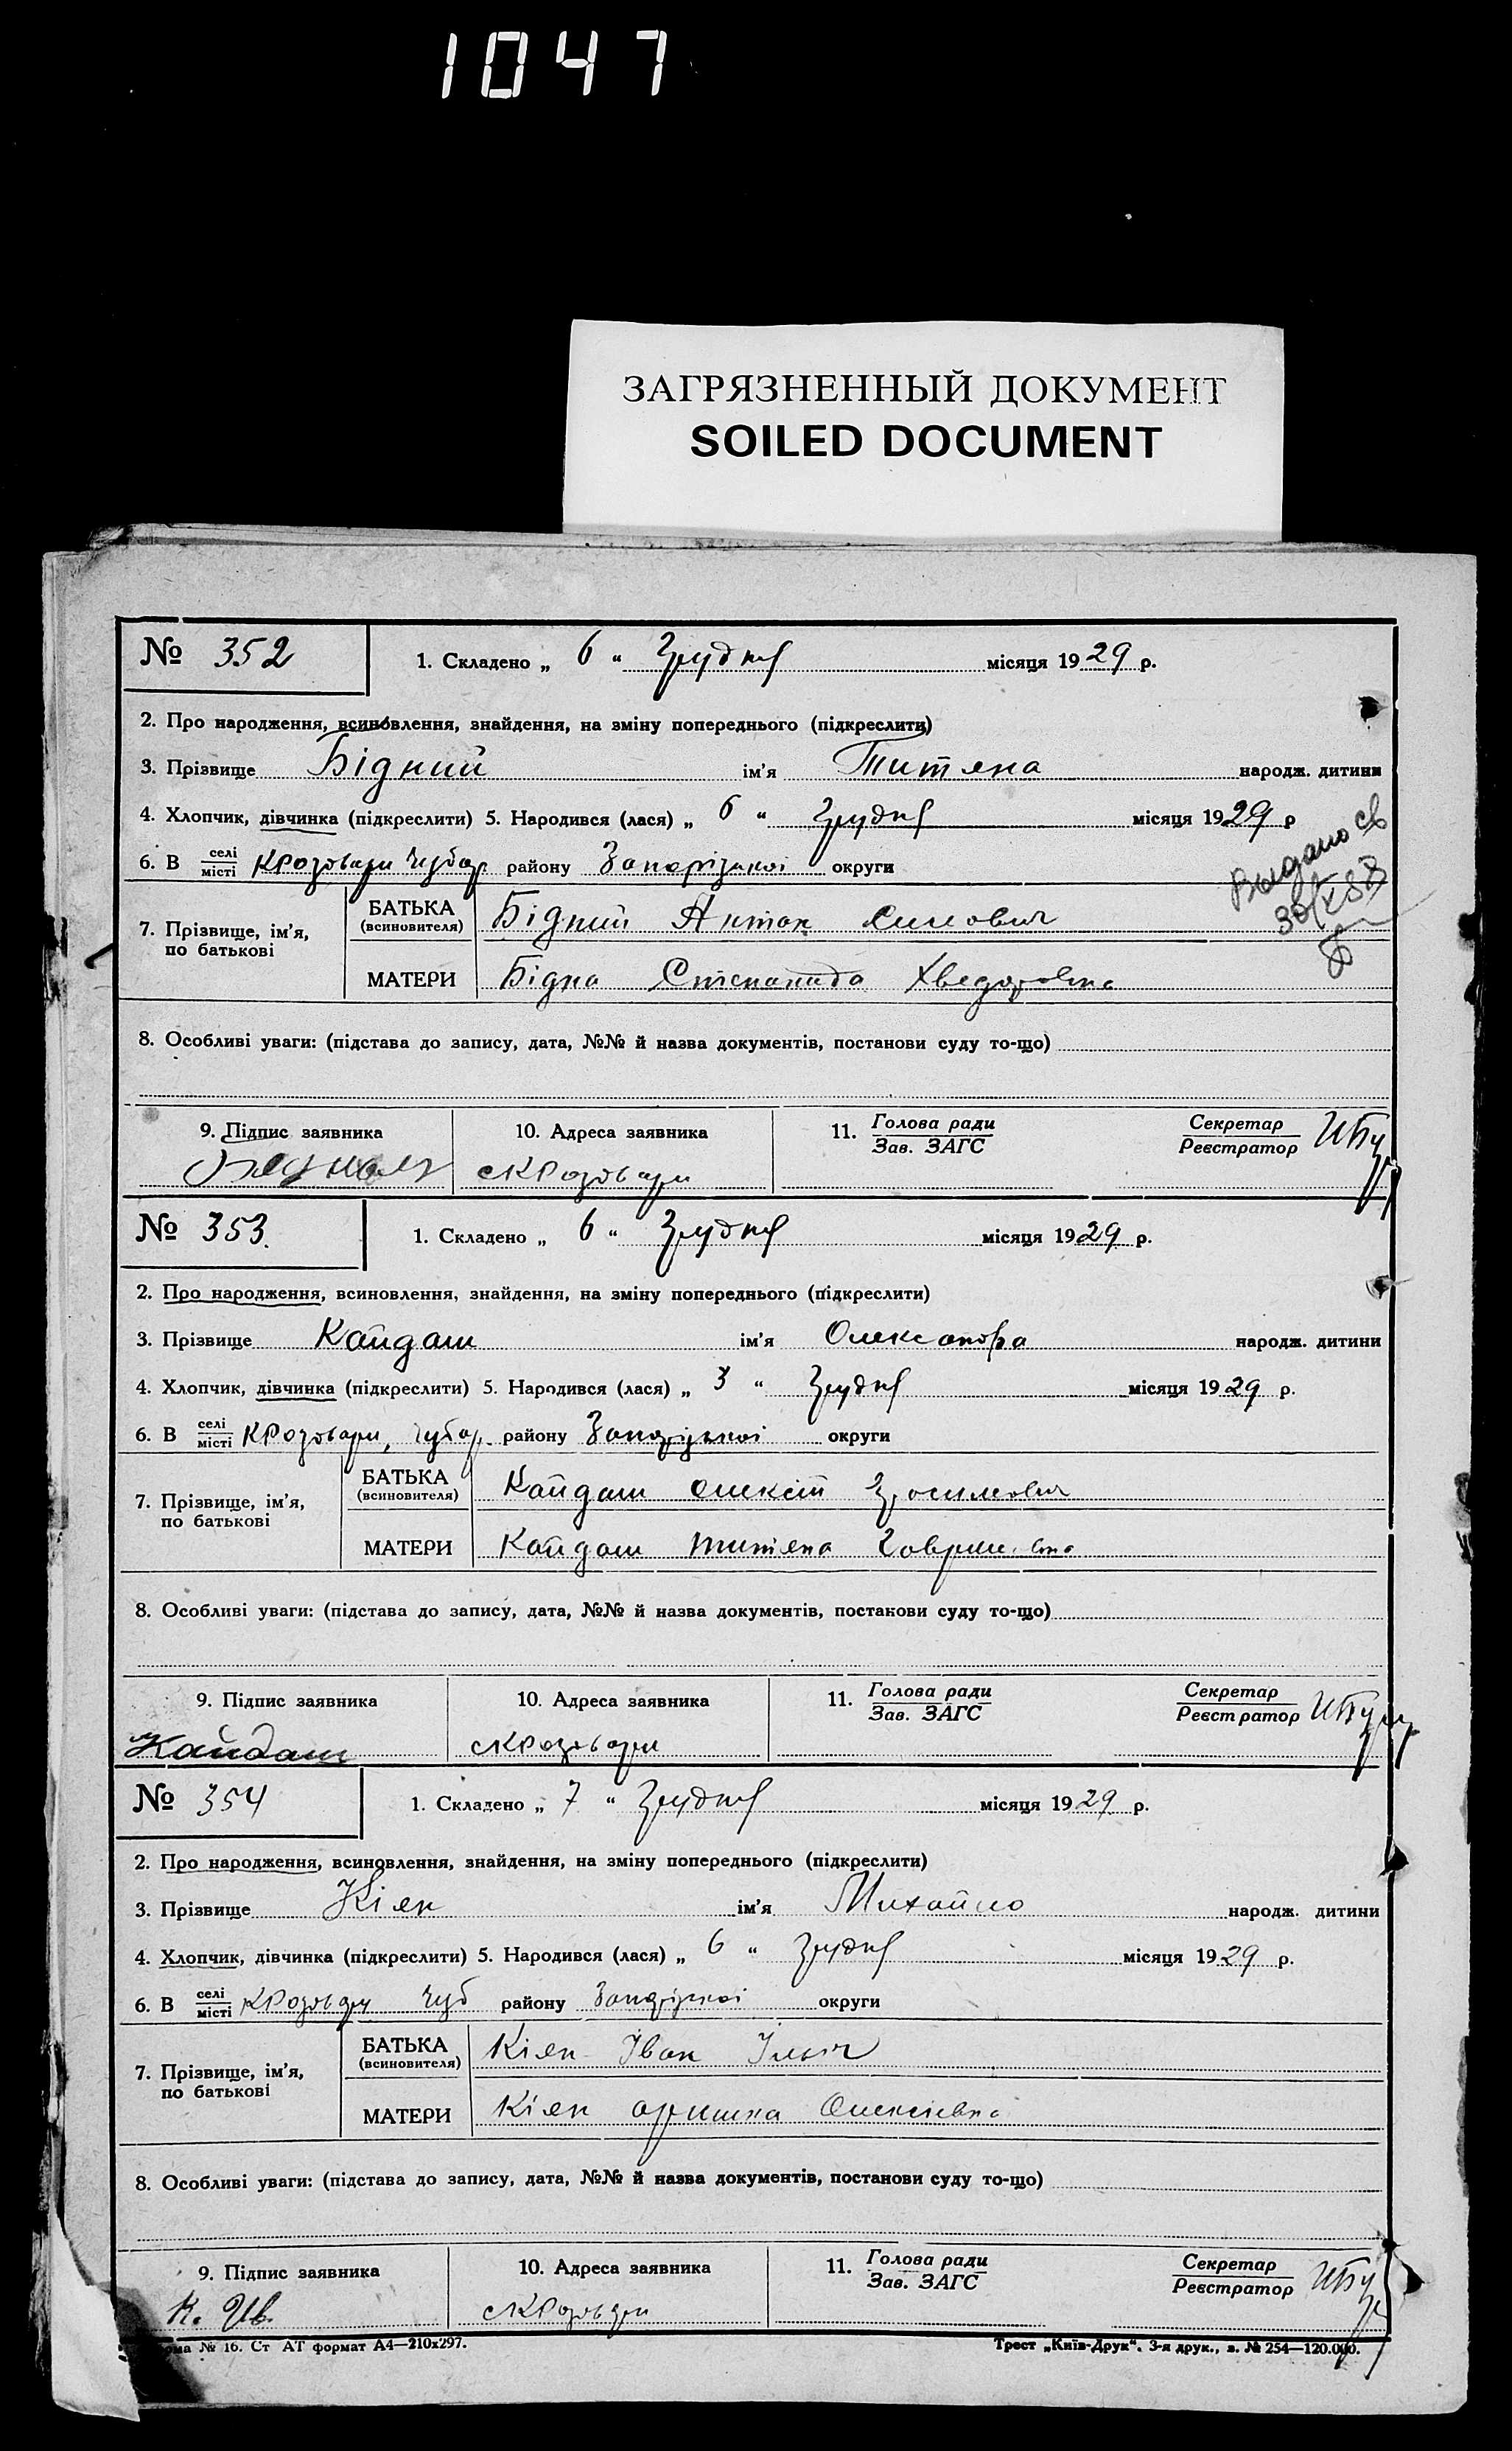 1047
ЗАГРЯЗНЕННЫЙ ДОКУМЕНТ
SOILED DOCUMENT
№ 352
1. Складено „ 6 “ Грудня місяця 1929 р.
2. Про народження, всиновлення, знайдення, на зміну попереднього (підкреслити)
3. Прізвище Бідний ім'я Титяна народж. дитини
4. Хлопчик, дівчинка (підкреслити) 5. Народився (лася) „ 6 “ Грудня місяця 1929 р
6. В селі/місті КРозтвари Чубар. району Запорізької округи
Выдано св
7. Прізвище, ім'я, по батькові
БАТЬКА (всиновителя) Бідний Антон
МАТЕРИ Бідна Степанида Хведоровна
8. Особливі уваги: (підстава до запису, дата, №№ й назва документів, постанови суду то-що)
9. Підпис заявника 10. Адреса заявника 11. Голова ради/Зав. ЗАГС Секретар/Реєстратор
№ 353.
1. Складено „ 6 “ Грудня місяця 1929 р.
2. Про народження, всиновлення, знайдення, на зміну попереднього (підкреслити)
3. Прізвище Кайдаш ім'я Олександра народж. дитини
4. Хлопчик, дівчинка (підкреслити) 5. Народився (лася) „ 3 “ Грудня місяця 1929 р.
6. В селі/місті Чубар. району Запорізької округи
7. Прізвище, ім'я, по батькові
БАТЬКА (всиновителя) Кайдаш Олексій
МАТЕРИ Кайдаш Титяна
8. Особливі уваги: (підстава до запису, дата, №№ й назва документів, постанови суду то-що)
9. Підпис заявника 10. Адреса заявника 11. Голова ради/Зав. ЗАГС Секретар/Реєстратор
Кайдаш
№ 354
1. Складено „ 7 “ Грудня місяця 1929 р.
2. Про народження, всиновлення, знайдення, на зміну попереднього (підкреслити)
3. Прізвище Кіян ім'я Михайло народж. дитини
4. Хлопчик, дівчинка (підкреслити) 5. Народився (лася) „ 6 “ Грудня місяця 1929 р.
6. В селі/місті Чуб району Запорізької округи
7. Прізвище, ім'я, по батькові
БАТЬКА (всиновителя) Кіян Іван Ільіч
МАТЕРИ Кіян Оришка Олексієвна
8. Особливі уваги: (підстава до запису, дата, №№ й назва документів, постанови суду то-що)
9. Підпис заявника 10. Адреса заявника 11. Голова ради/Зав. ЗАГС Секретар/Реєстратор
К. Ив.
№ 16. Ст АТ формат А4—210х297. Трест „Київ-Друк“. 3-я друк., з. № 254—120.000.